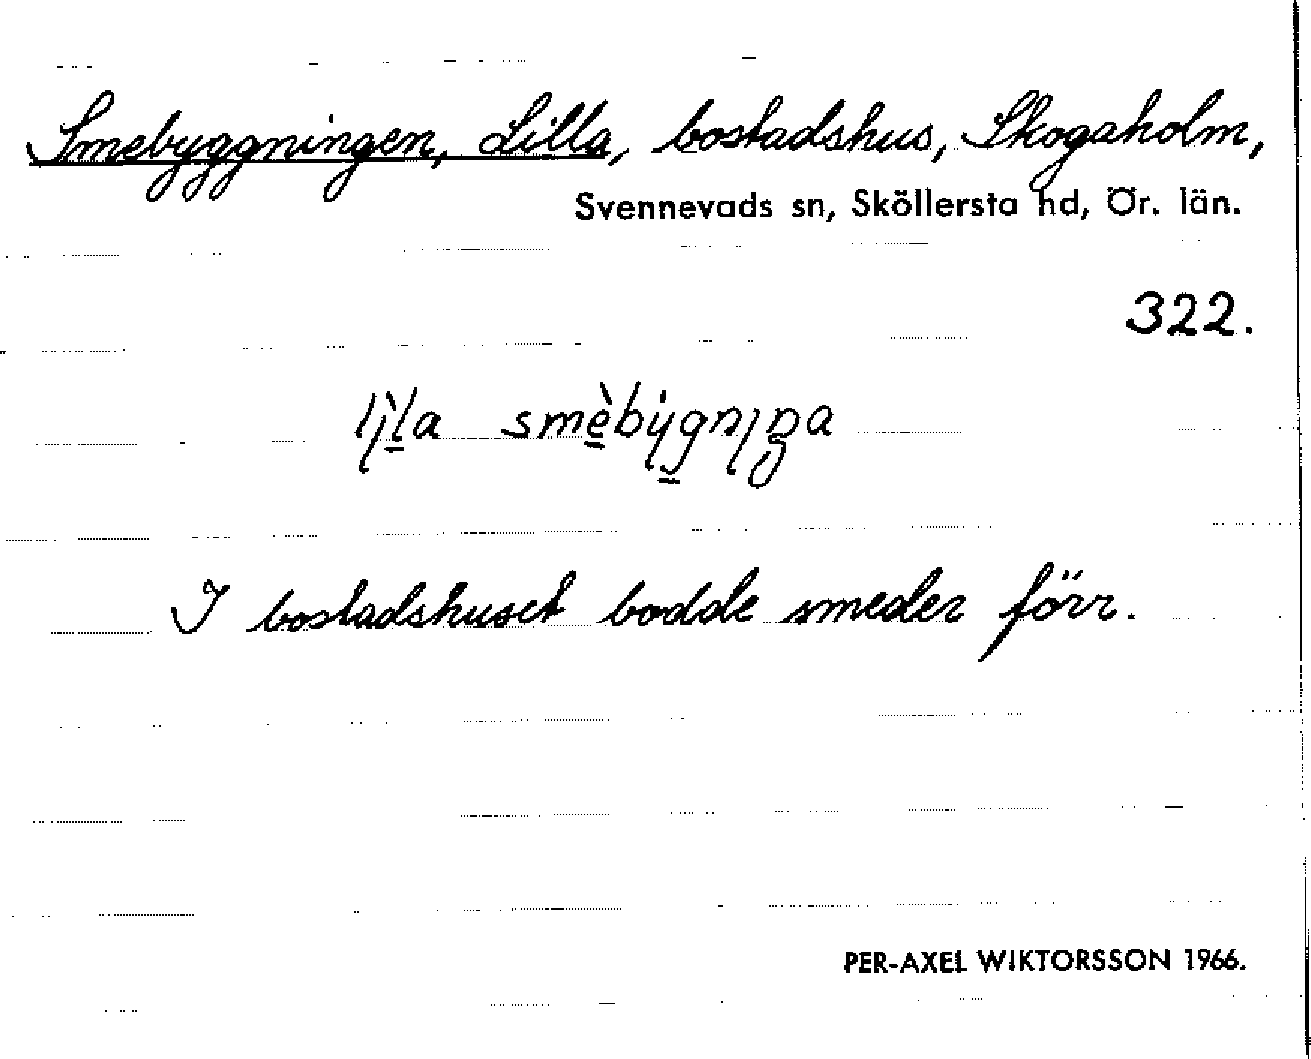 Smebyggningen, Lilla, bostadshus, Skogaholm,
Svennevads sn, Sköllersta hd, Ör. län.
322.
I bostadshuset bodde smeder förr.
PER-AXEL WIKTORSSON 1966.